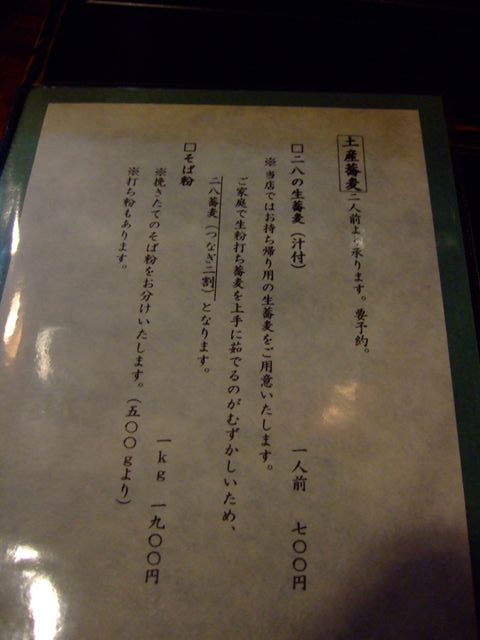 土産蕎麦 二人前より承ります。要予約。
□二八の生蕎麦（汁付） 一人前 七〇〇円
※当店ではお持ち帰り用の生蕎麦をご用意いたします。
ご家庭で生粉打ち蕎麦を上手に茹でるのがむずかしいため、
二八蕎麦（つなぎ二割）となります。
□そば粉 一kg 一九〇〇円
※挽きたてのそば粉をお分けいたします。（五〇〇gより）
※打ち粉もあります。